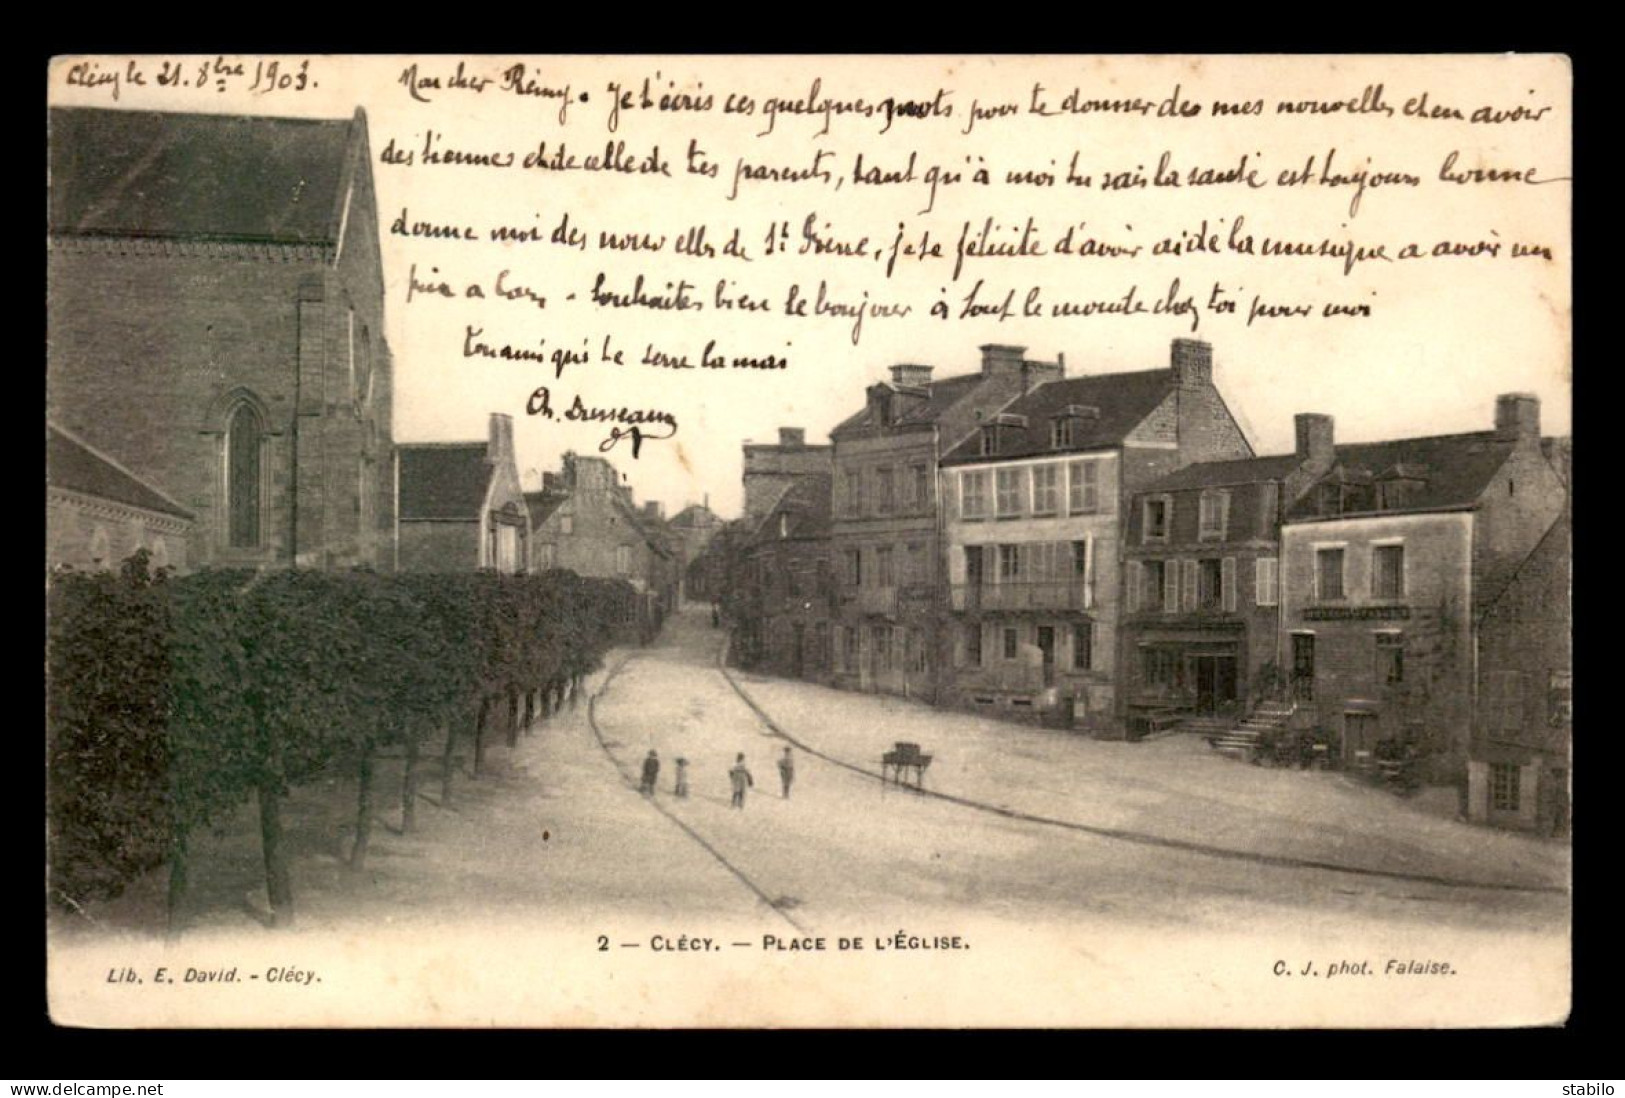 Clécy le 21. 8bre 1903.
Mon cher Rémy. Je t'écris ces quelques mots pour te donner des mes nouvelles et en avoir
des tiennes et de celle de tes parents, tant qu'à moi tu sais la santé est toujours bonne
donne moi des nouvelles de St Pierre, je te félicite d'avoir aidé la musique a avoir un
prix a Caen. Souhaites bien le bonjour à tout le monde chez toi pour moi
ton ami qui te serre la mai
Ch.
2 — CLÉCY. — PLACE DE L'ÉGLISE.
Lib. E. David. - Clécy.
C. J. phot. Falaise.
www.delcampe.net
stabilo